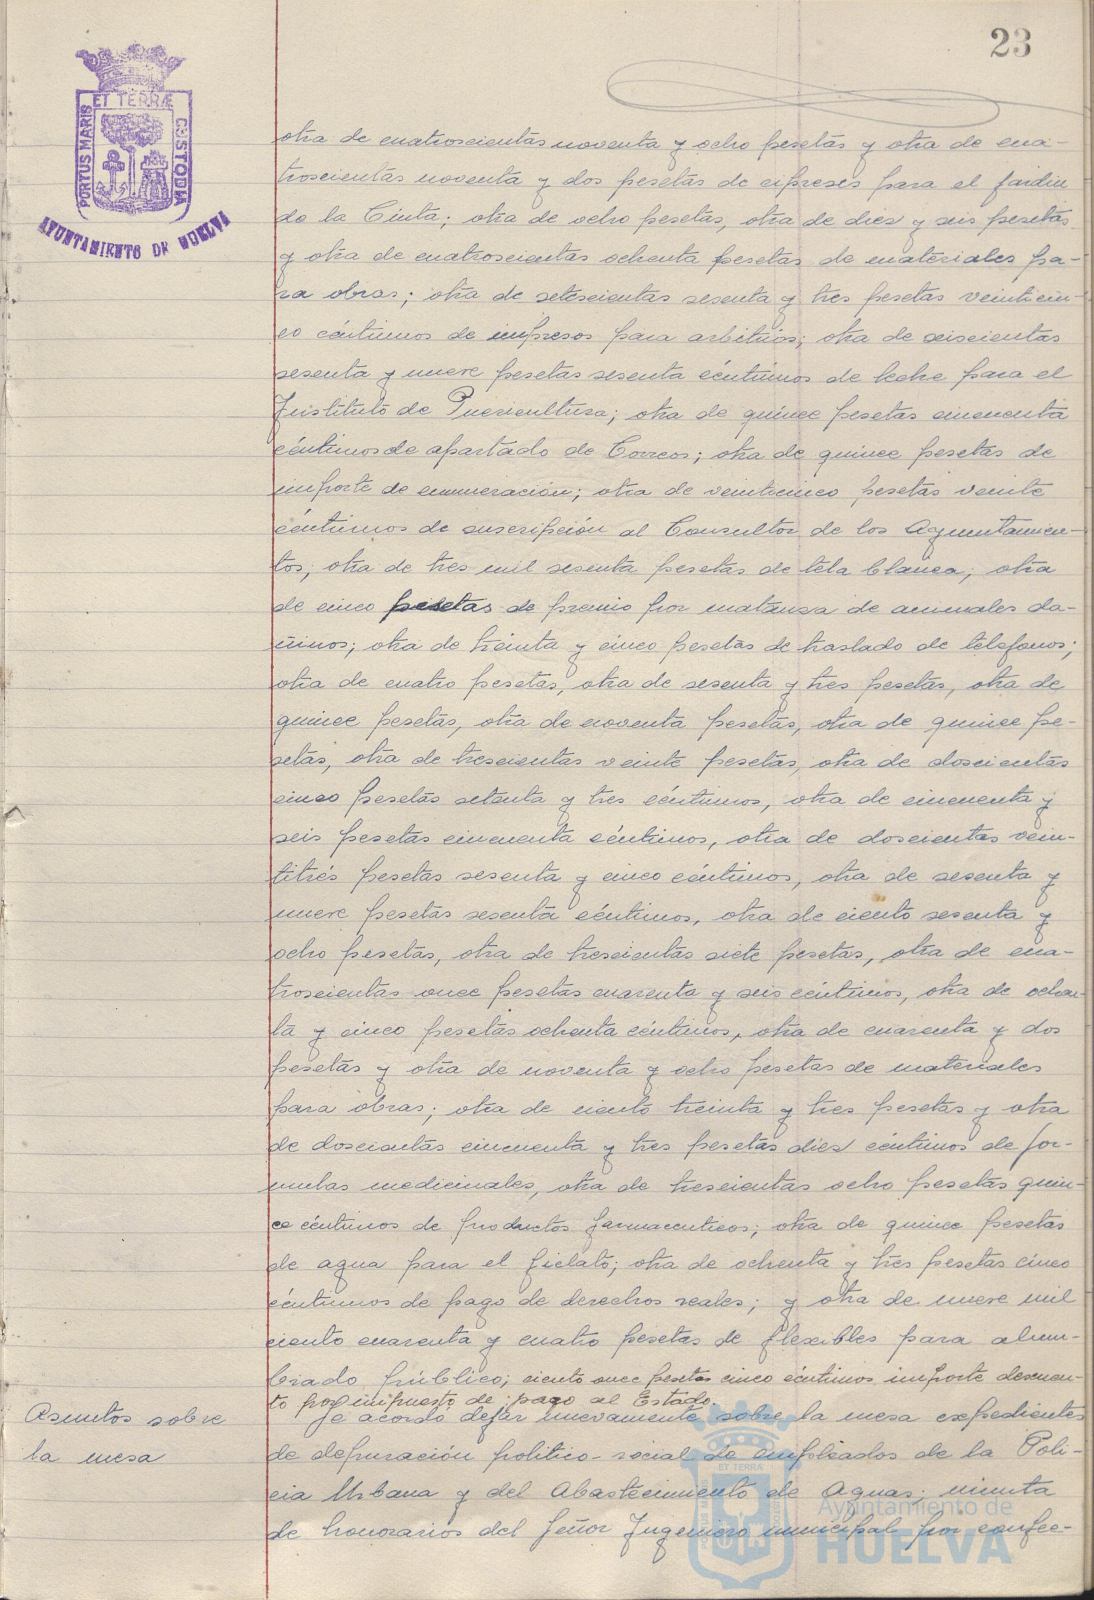 23
PORTUS MARIS ET TERRÆ CUSTODIA
AYUNTAMIENTO DE HUELVA
otra de cuatroscientas noventa y ocho pesetas y otra de cua-
troscientas noventa y dos pesetas de cipreses para el jardin
de la Cinta; otra de ocho pesetas, otra de diez y seis pesetas
y otra de cuatroscientas ochenta pesetas de materiales pa-
ra obras; otra de setescientas sesenta y tres pesetas veinticin-
co céntimos de impresos para arbitrios; otra de seiscientas
sesenta y nueve pesetas sesenta céntimos de leche para el
Instituto de Puericultura; otra de quince pesetas cincuenta
céntimos de apartado de Correos; otra de quince pesetas de
importe de enumeración; otra de veinticinco pesetas veinte
céntimos de suscripción al Consultor de los Ayuntamien-
tos; otra de tres mil sesenta pesetas de tela blanca; otra
de cinco pesetas de premio por matanza de animales da-
ñinos; otra de treinta y cinco pesetas de traslado de telefonos;
otra de cuatro pesetas, otra de sesenta y tres pesetas, otra de
quince pesetas, otra de noventa pesetas, otra de quince pe-
setas, otra de trescientas veinte pesetas, otra de doscientas
cinco pesetas setenta y tres céntimos, otra de cincuenta y
seis pesetas cincuenta céntimos, otra de doscientas vein-
titrés pesetas sesenta y cinco céntimos, otra de sesenta y
nueve pesetas sesenta céntimos, otra de ciento sesenta y
ocho pesetas, otra de trescientas siete pesetas, otra de cua-
troscientas once pesetas cuarenta y seis céntimos, otra de ochen-
ta y cinco pesetas ochenta céntimos, otra de cuarenta y dos
pesetas y otra de noventa y ocho pesetas de materiales
para obras; otra de ciento treinta y tres pesetas y otra
de doscientas cincuenta y tres pesetas diez céntimos de for-
mulas medicinales, otra de trescientas ocho pesetas quin-
ce céntimos de productos farmaceuticos; otra de quince pesetas
de agua para el fielato; otra de ochenta y tres pesetas cinco
céntimos de pago de derechos reales; y otra de nueve mil
ciento cuarenta y cuatro pesetas de flexibles para alum-
brado público; ciento once pesetas cinco céntimos importe descuen-
to por impuesto de pago al Estado.
Asuntos sobre
la mesa
Se acordo dejar nuevamente sobre la mesa expedientes
de depuración politico-social de empleados de la Poli-
cia Urbana y del Abastecimiento de Aguas; minuta
de honorarios del Señor Ingeniero municipal por confec-
Ayuntamiento de
HUELVA